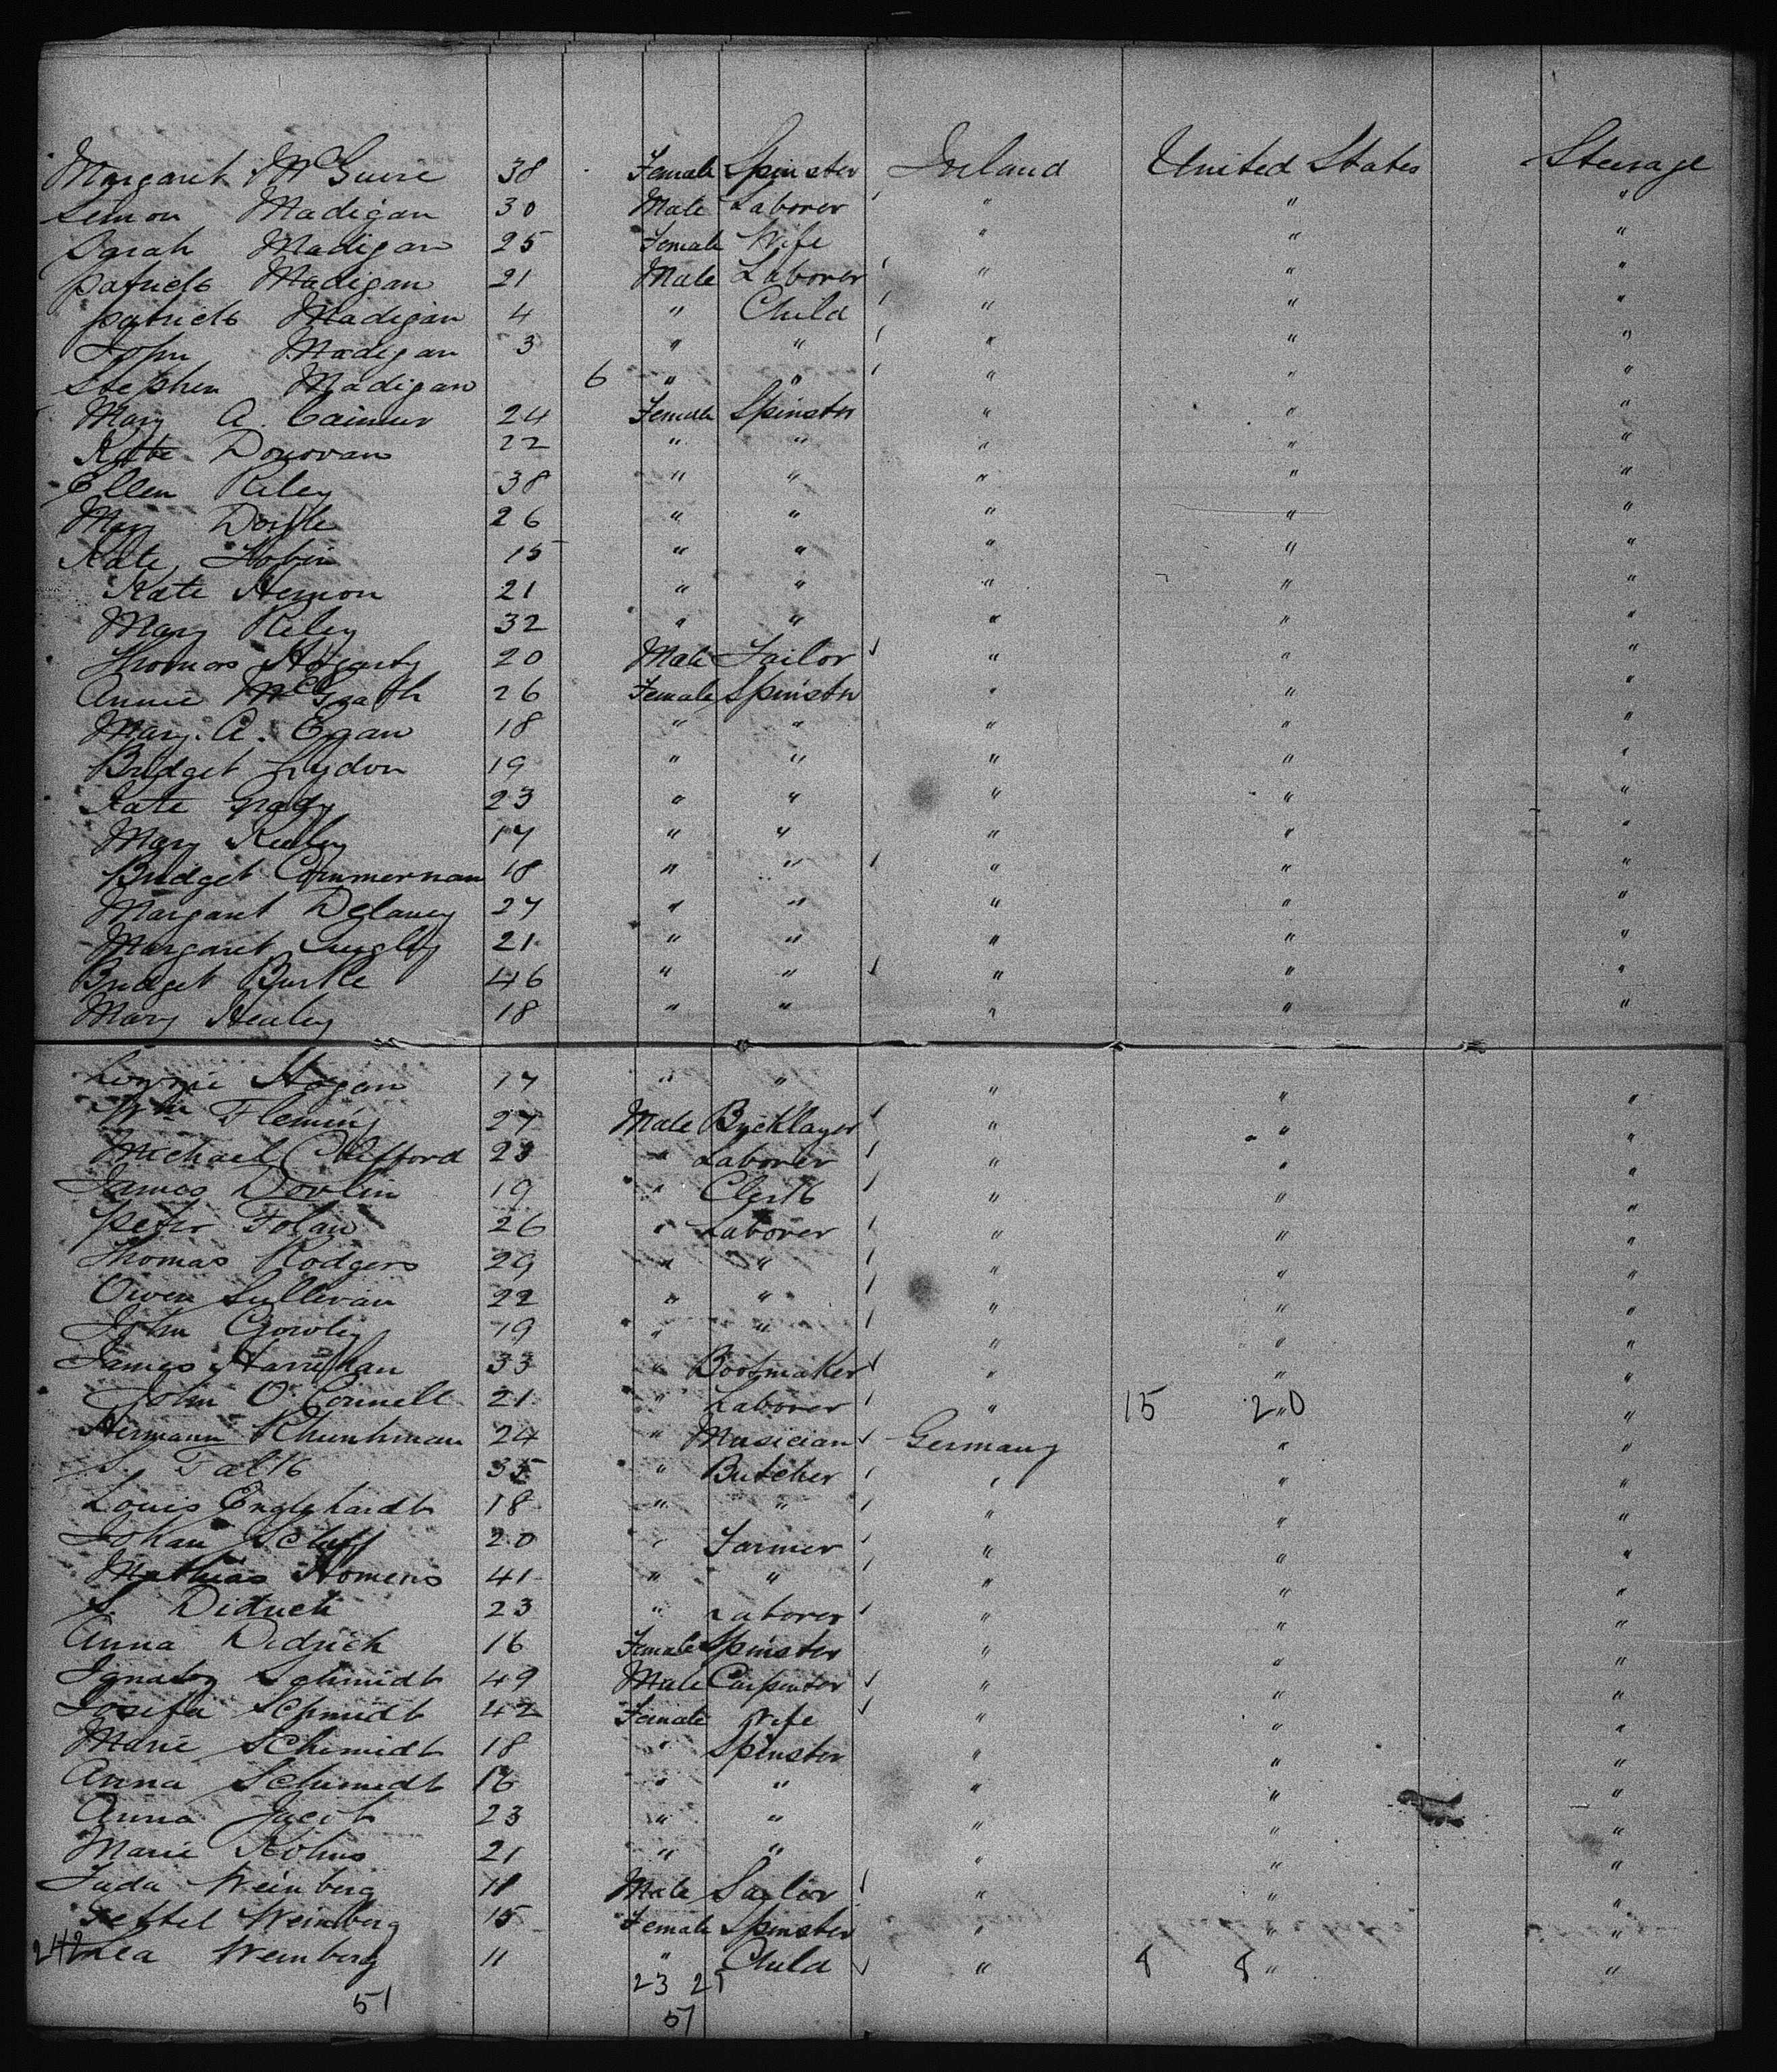 Margaret McGuire 38 Female Spinster Ireland United States Steerage
Simon Madigan 30 Male Laborer " " "
Sarah Madigan 25 Female Wife " " "
Patrick Madigan 21 Male Laborer " " "
Patrick Madigan 4 " Child " " "
John Madigan 3 " " " " "
Stephen Madigan 6 " " " " "
Mary A. 24 Female Spinster " " "
Kate Donovan 22 " " " " "
Ellen Riley 38 " " " " "
Mary Doyle 26 " " " " "
Kate Tobin 15 " " " " "
Kate 21 " " " " "
Mary Riley 32 " " " " "
Thomas Hogarty 20 Male Tailor " " "
Annie McGrath 26 Female Spinster " " "
Mary. A. Egan 18 " " " " "
Bridget Lydon 19 " " " " "
Kate Grady 23 " " " " "
Mary 17 " " " " "
Bridget 18 " " " " "
Margaret Delaney 27 " " " " "
Margaret 21 " " " " "
Bridget Burke 46 " " " " "
Mary Healey 18 " " " " "
Lizzie Hogan 17 " " " " "
Wm Fleming 27 Male Bricklayer " " "
Michael Clifford 23 " Laborer " " "
James Dovlin 19 " Clerk " " "
Peter Folan 26 " Laborer " " "
Thomas Rodgers 29 " " " " "
Owen Sullivan 22 " " " " "
John Crowley 19 " " " " "
James Harrihan 33 " Bootmaker " " "
John O'Connell 21 " Laborer " 15 20 " "
Hermann 24 " Musician Germany " "
S. Falk 35 " Butcher " " "
Louis Englehardt 18 " " " " "
Johan 20 " Farmer " " "
Mathias Homens 41 " " " " "
S. Didrich 23 " Laborer " " "
Anna Didrich 16 Female Spinster " " "
Ignatz Schmidt 49 Male Carpenter " " "
Josefa Schmidt 42 Female Wife " " "
Marie Schmidt 18 " Spinster " " "
Anna Schmidt 16 " " " " "
Anna Jacob 23 " " " " "
Marie Kohns 21 " " " " "
Juda Weinberg 18 Male Sailor " " "
Weinberg 15 Female Spinster " " "
242 Lea Weinberg 11 " Child " 8 8 " "
51 23 28
51